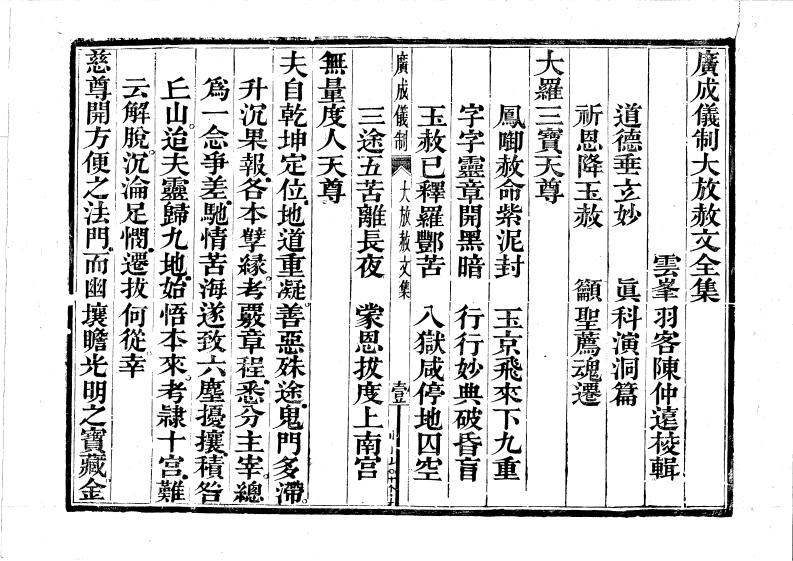 廣成儀制大放赦文全集
雲峯羽客陳仲遠校輯
道德垂玄妙 眞科演洞篇
祈恩降玉赦 籲聖薦魂遷
大羅三寶天尊
鳳啣赦命紫泥封 玉京飛來下九重
字字靈章開黑暗 行行妙典破昏盲
玉赦已釋羅酆苦 八獄咸停地四空
三途五苦離長夜 蒙恩拔度上南宮
廣成儀制 大放赦文集 壹
無量度人天尊
夫自乾坤定位地道重凝善惡殊途鬼門多滯
升沉果報各本孽緣考覈章程悉分主宰總
爲一念爭差馳情苦海遂致六塵擾攘積咎
丘山迨夫靈歸九地始悟本來考隷十宮難
云解脫沉淪足憫遷拔何從幸
慈尊開方便之法門而幽壤瞻光明之寶藏金